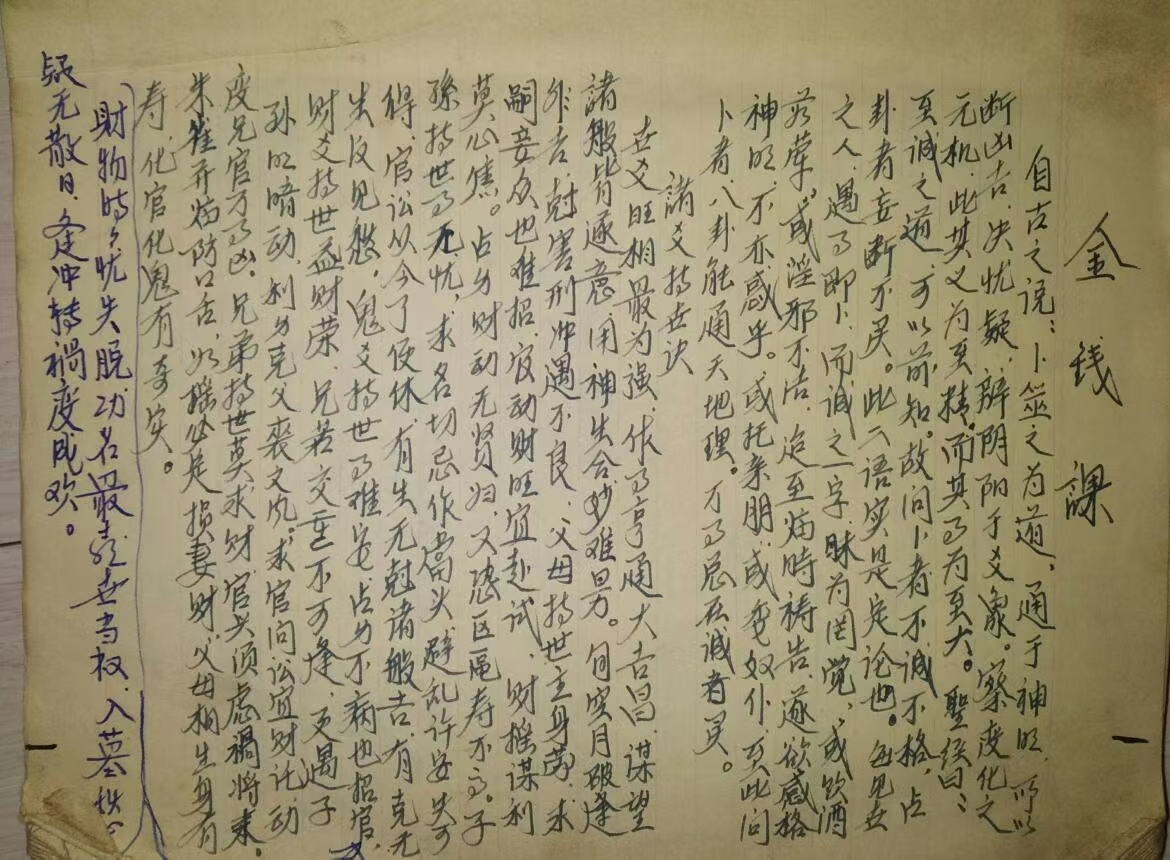 金钱課
自古之说：卜筮之为道，通于神明，所以
断凶吉，决忧疑，辩阴阳于爻象。察变化之
元机，此其义为至精。而其为至大。聖经曰：
至诚之道，可以前知。故问卜者不诚不格，占
卦者妄断不灵。此二语实是定论也。每见世
之人，遇即卜，而诚之一字，昧为罔觉，或饮酒
茹荤，或淫邪不洁，迨至临時祷告，遂欲感格
神明，不亦惑乎。或托亲朋，或委奴仆，至此问
卜者，八卦能通天地理。万总在诚者灵。
諸爻持世诀
世爻旺相最为强，作亨通大吉昌，谋望
諸般皆遂意，用神生合妙难量。旬空月破逢
非吉，尅害刑冲遇不良，父母持世主身劳，求
嗣妾众也难招，官动财旺宜赴试，财摇谋利
莫心焦。占财动无贤妇，又恐区寿不高。子
孫持世无忧，求名切忌作當头，避乱许安失可
得，官讼从今了便休，有生无尅諸般吉，有克无
生反见愁，鬼爻持世难安，占不病也招官，
财爻持世益财荣，兄若交重不可逢，更遇子
孙明暗动，利克父丧文风。求官问讼宜财托，动
变兄官万凶，兄弟持世莫求财，官兴须虑祸将来。
朱雀并临防口舌，如摇必是损妻财，父母相生身有
寿，化官化鬼有奇灾。
財物時忧失脱，功名最喜世当权，入墓
疑无散日，逢冲转祸变成欢。